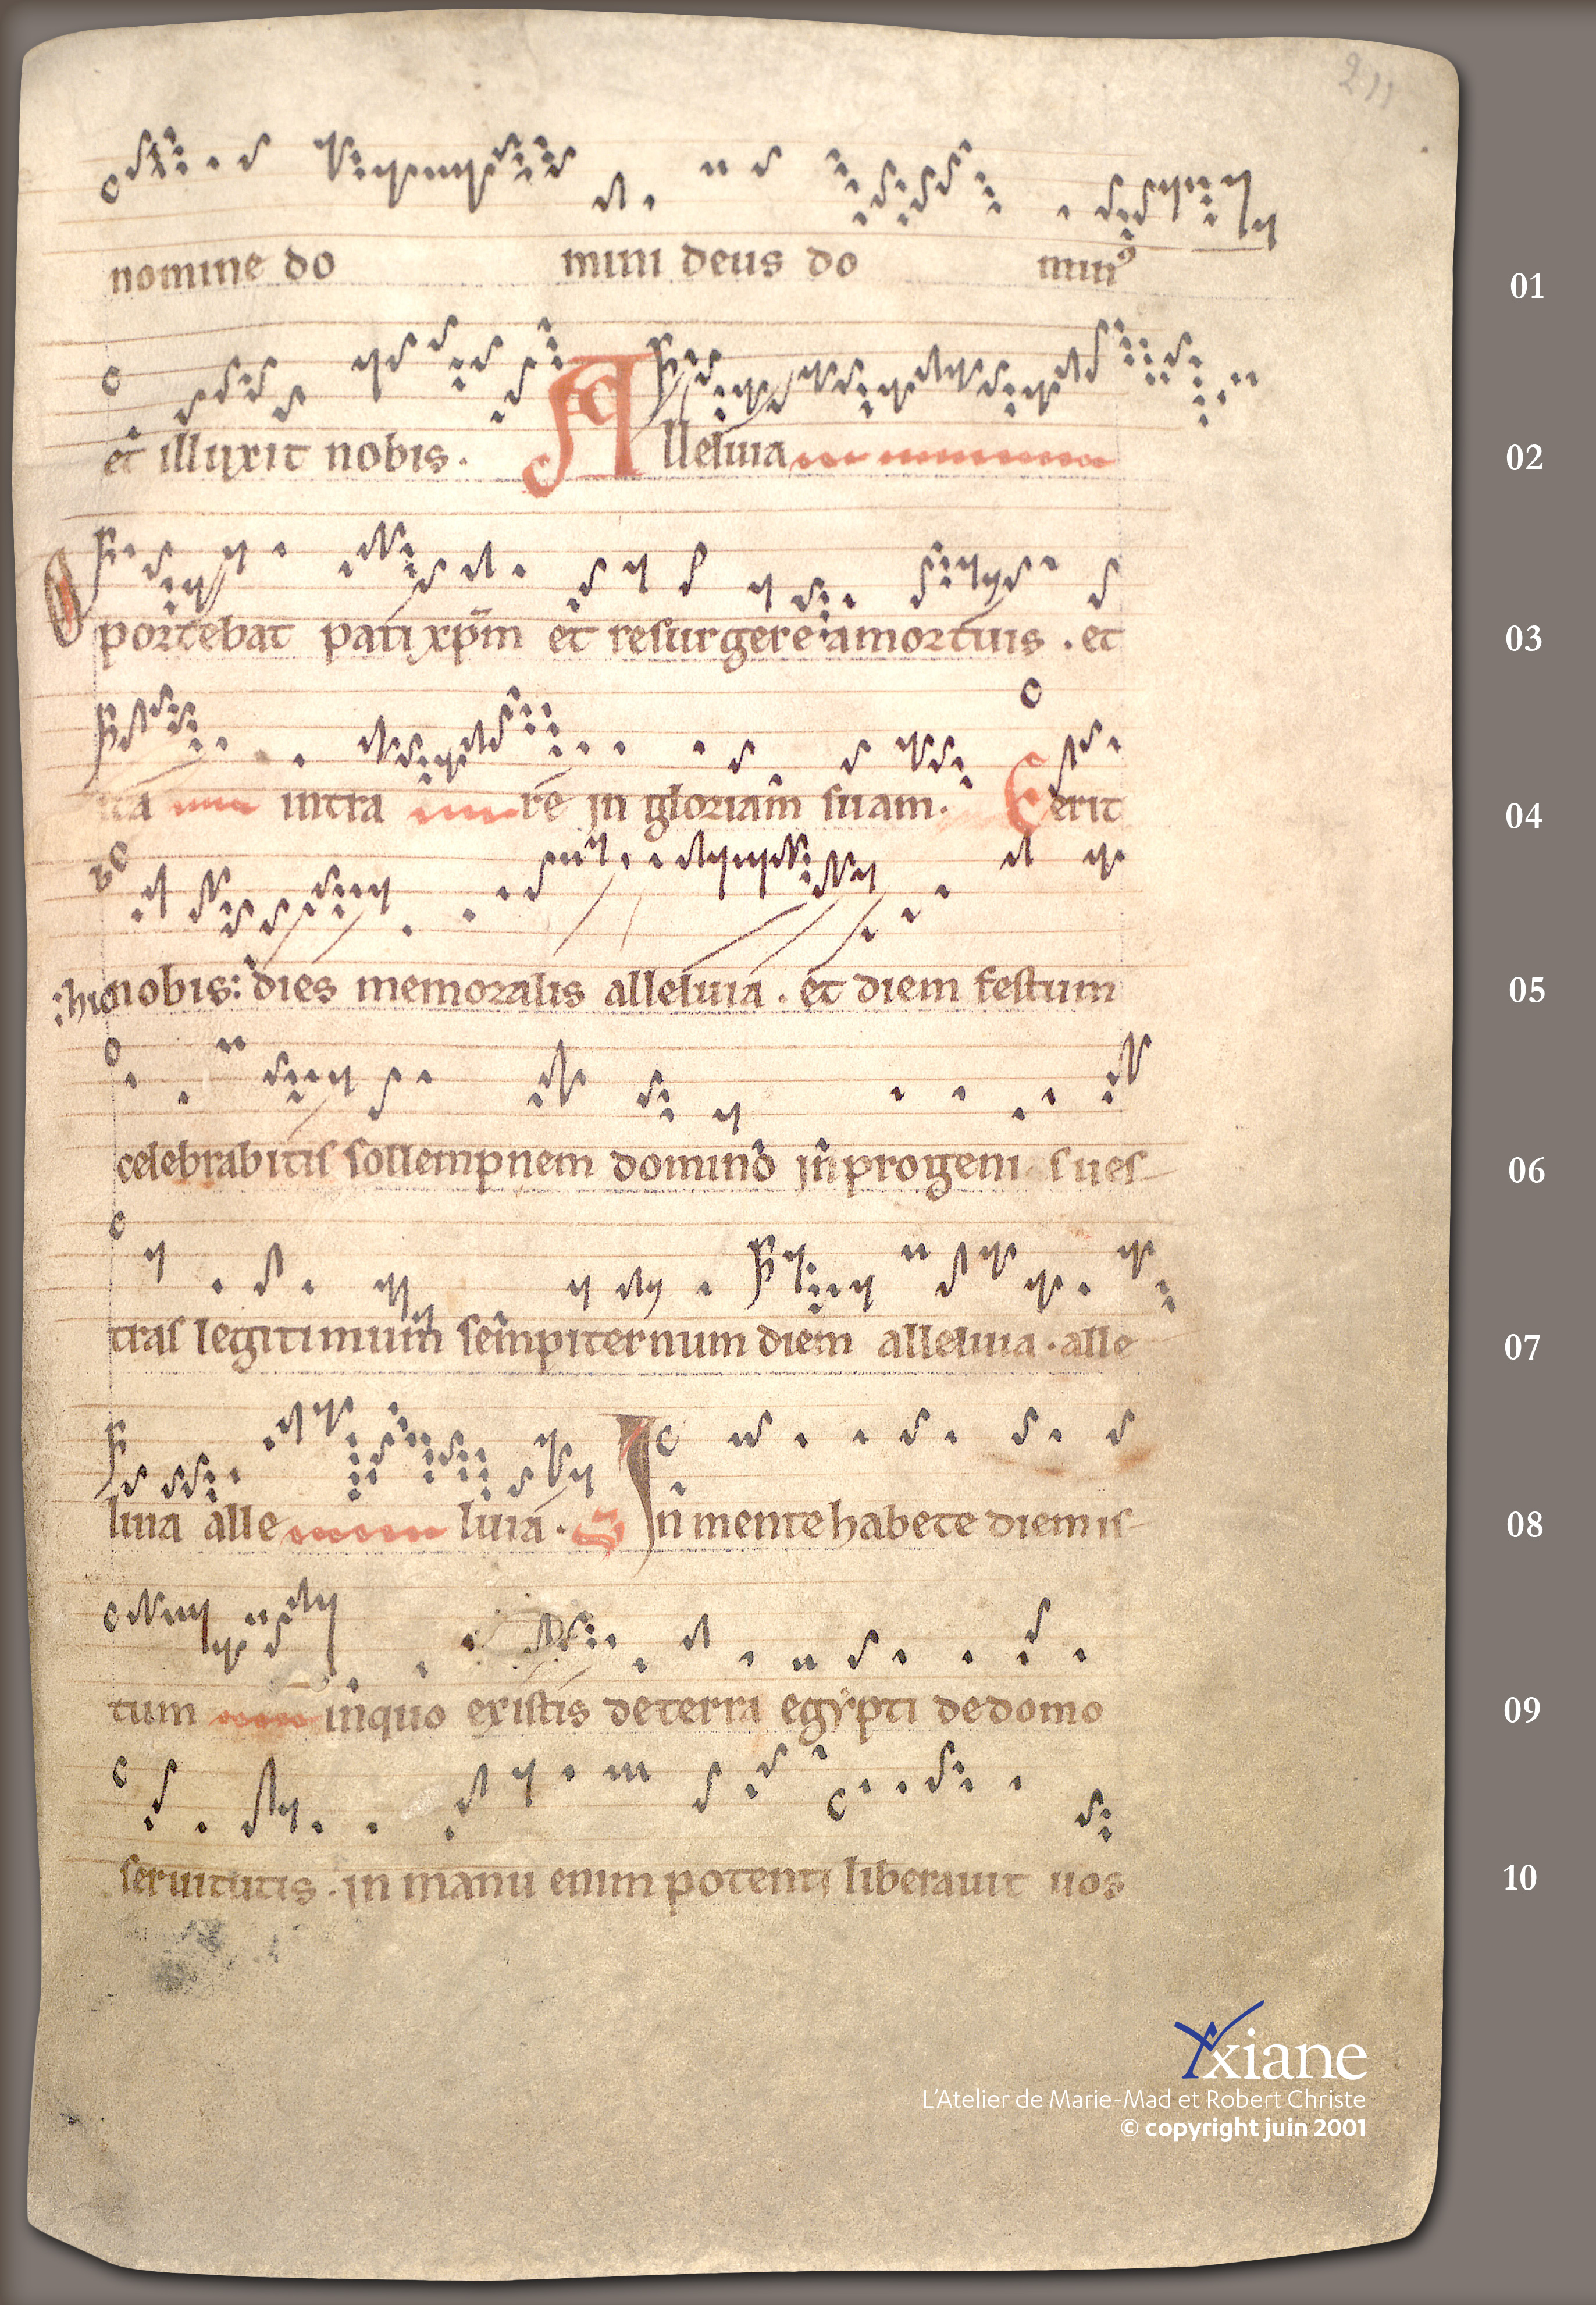 211
nomine do mini deus do min⁹
01
et illuxit nobis. Alleluia
02
Oportebat pati xp̄m et resurgere a mortuis . et
03
ita intra re in gloriam suam. Eerit
04
:hic nobis: dies memoralis alleluia . et diem festum
05
celebrabitis sollempnem domino in progenies ues-
06
tras legitimum sempiternum diem alleluia . alle
07
luia alle luia . In mente habete diem is-
08
tum in quo existis de terra egypti de domo
09
seruitutis . in manu enim potenti liberauit uos
10
Yxiane
L'Atelier de Marie-Mad et Robert Christe
© copyright juin 2001